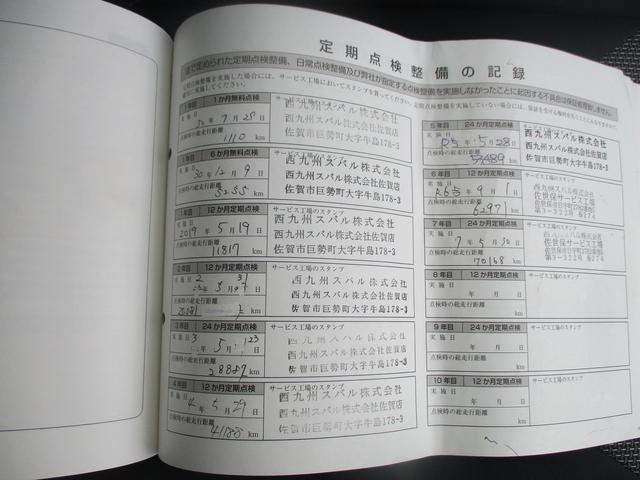 定期点検整備の記録
法で定められた定期点検整備、日常点検整備及び弊社が指定する点検整備を実施しなかったことに起因する不具合は保証修理致しません。
1年目 1か月無料点検
実施日 30年 7月 28日
点検時の総走行距離
1110 km
西九州スバル株式会社
西九州スバル株式会社佐賀店
佐賀市巨勢町大字牛島178-3
1年目 6か月無料点検
実施日 30年 12月 9日
点検時の総走行距離
5255 km
西九州スバル株式会社
西九州スバル株式会社佐賀店
佐賀市巨勢町大字牛島178-3
1年目 12か月定期点検
サービス工場のスタンプ
実施日 2019年 5月 19日
点検時の総走行距離
11817 km
西九州スバル株式会社
西九州スバル株式会社佐賀店
佐賀市巨勢町大字牛島178-3
2年目 12か月定期点検
サービス工場のスタンプ
実施日 2年 5月 日
点検時の総走行距離
km
西九州スバル株式会社
西九州スバル株式会社佐賀店
佐賀市巨勢町大字牛島178-3
3年目 24か月定期点検
サービス工場のスタンプ
実施日 3年 5月 23日
点検時の総走行距離
28887 km
西九州スバル株式会社
西九州スバル株式会社佐賀店
佐賀市巨勢町大字牛島178-3
4年目 12か月定期点検
サービス工場のスタンプ
実施日 4年 5月 29日
点検時の総走行距離
41188 km
西九州スバル株式会社
西九州スバル株式会社佐賀店
佐賀市巨勢町大字牛島178-3
5年目 24か月定期点検
実施日 R5年 5月 28日
点検時の総走行距離
km
西九州スバル株式会社
西九州スバル株式会社佐賀店
佐賀市巨勢町大字牛島178-3
6年目 12か月定期点検
サービス工場のスタンプ
実施日 R6年 9月 1日
点検時の総走行距離
62971 km
西九州スバル株式会社
佐世保サービス工場
7年目 24か月定期点検
サービス工場のスタンプ
実施日 7年 5月 30日
点検時の総走行距離
70168 km
西九州スバル株式会社
佐世保サービス工場
8年目 12か月定期点検
サービス工場のスタンプ
実施日 年 月 日
点検時の総走行距離
km
9年目 24か月定期点検
サービス工場のスタンプ
実施日 年 月 日
点検時の総走行距離
km
10年目 12か月定期点検
サービス工場のスタンプ
実施日 年 月 日
点検時の総走行距離
km